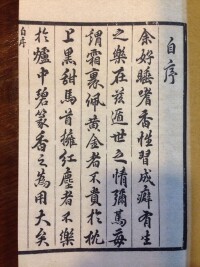 自序
余好睡嗜香性習成癖有生
之樂在茲遯世之情彌篤每
謂霜裏佩黃金者不貴於枕
上黑甜馬首擁紅塵者不樂
於爐中碧篆香之為用大矣
自序